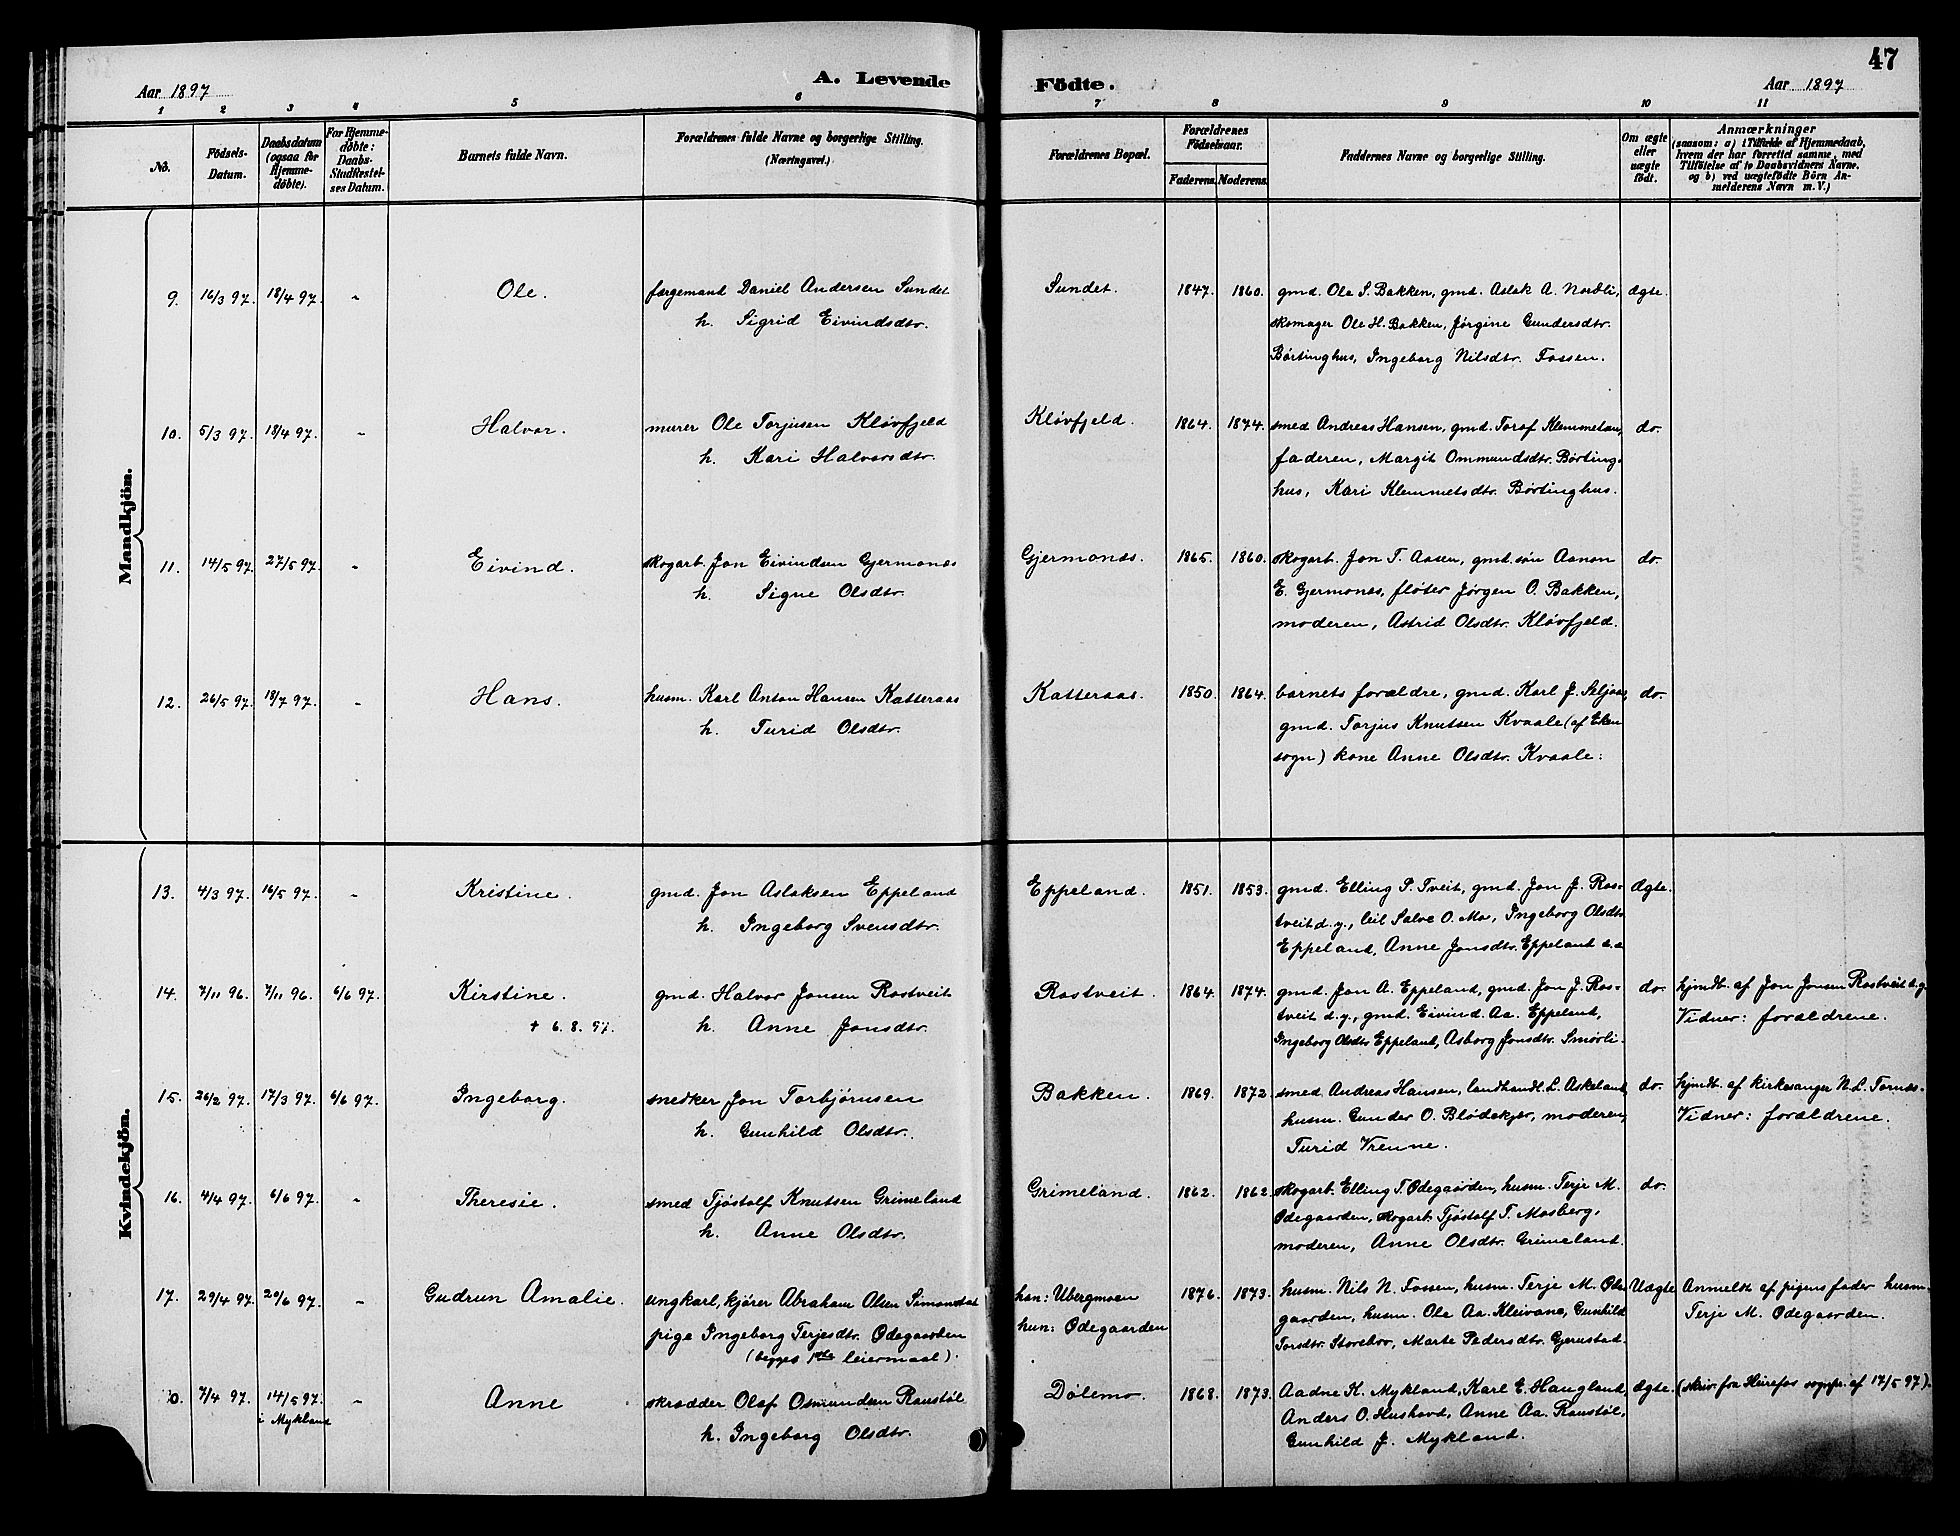 47
A. Levende Födte.
Aar 1897
Aar 1897
1 2 3 4 5 6 7 8 9 10 11
No.
Födsels-Datum.
Daabsdatum (ogsaa for Hjemme-døbte).
For Hjemme-døbte: Daabs-Stadfæstel-ses Datum.
Barnets fulde Navn.
Forældrenes fulde Navne og borgerlige Stilling. (Næringsvei.)
Forældrenes Bopæl.
Forældrenes Födselsaar.
Faderens. Moderens.
Faddernes Navne og borgerlige Stilling.
Om ægte eller uægte födt.
Anmærkninger
(saasom: a) i Tilfælde af Hjemmedaab, hvem der har forrettet samme, med Tilföielse af to Daabsvidners Navne. og b) ved uægtefödte Börn An-melderens Navn m. V.)
Mandkjön.
9. 16/3 97. 18/4 97. - Ole. færgemand Daniel Andersen Sundet Sundet. 1847. 1860. gmd. Ole S. Bakken, gmd. Aslak A. Nordli, Ægte.
h. Sigrid Eivindsdtr. skomager Ole H. Bakken, Jørgine Gundersdtr.
Børtinghus, Ingeborg Nilsdtr. Fossen.
10. 5/3 97. 18/4 97. - Halvor. murer Ole Torjusen Kløvfjeld Kløvfjeld. 1864. 1874. smed Andreas Hansen, gmd. Toraf Klemmetsen, do.
h. Kari Halvorsdtr. faderen, Margit Ommundsdtr. Børting-
hus, Kari Klemmetsdtr. Børtinghus.
11. 14/5 97. 27/5 97. - Eivind. skogarb. Jon Eivindsen Gjermones Gjermones. 1865. 1860. skogarb. Jon T. Aasen, gmd. søn Aanon do.
h. Signe Olsdtr. E. Gjermones, fløter Jørgen O. Bakken,
moderen, Astrid Olsdtr. Kløvfjeld.
12. 26/5 97. 18/7 97. - Hans. husm. Karl Anton Hansen Katteraas Katteraas. 1850. 1864. barnets forældre, gmd. Karl J. Seljaas, do.
h. Turid Olsdtr. gmd. Torjus Knutsen Kvaale (af Eken
sogn) kone Anne Olsdtr. Kvaale:
Kvindekjön.
13. 4/3 97. 16/5 97. - Kristine. gmd. Jon Aslaksen Eppeland Eppeland. 1851. 1853. gmd. Elling P. Tveit, gmd. Jon J. Ros- Ægte.
h. Ingeborg Svensdtr. tveit d.y., leil Salve O. Mo, Ingeborg Olsdtr
Eppeland, Anne Jonsdtr. Eppeland
14. 7/11 96. 7/11 96. 6/6 97. Kirstine. gmd. Halvor Jonsen Rostveit Rostveit. 1864. 1874. gmd. Jon A. Eppeland, gmd. Jon J. Ros- do. hjmdb. af Jon Jonsen Rostveit d.y.
+ 6. 8. 97. h. Anne Jonsdtr. tveit d.y., gmd. Eivind Aa. Eppeland, Vidner: forældrene.
Ingeborg Olsdtr Eppeland, Asborg Jonsdtr. Smørli.
15. 26/2 97. 17/3 97. 6/6 97. Ingeborg. snedker Jon Torbjørnsen Bakken. 1869. 1872. smed Andreas Hansen, landhandl. L. Askeland, do. hjmdb. af kirkesanger N. L. Tornæs.
h. Gunhild Olsdtr. husm. Gunder O. Blødekjær, moderen, Vidner: forældrene.
Turid Vrenne.
16. 4/4 97. 6/6 97. - Theresie. smed Tjøstolf Knutsen Grimeland Grimeland. 1862. 1862. skogarb. Elling T. Ødegaarden, husm. Terje M. do.
h. Anne Olsdtr. Ødegaarden, skogarb Tjøstolf T. Mosberg,
moderen, Anne Olsdtr. Grimeland.
17. 29/4 97. 20/6 97. - Gudrun Amalie. ungkarl, kjører Abraham Olsen Simonstad han: Ubergmoen 1876. 1873. husm. Nils N. Fossen, husm. Terje M. Øde- Uægte Anmeldt af pigens fader husm.
pige Ingeborg Terjesdtr. Ødegaarden hun: Ødegaarden gaarden, husm. Ole Aa. Kleivane, Gunhild Terje M. Ødegaarden.
(begges 1ste leiermaal). Torsdtr. Storebro, Marte Pedersdtr. Gjerustad.
0. 7/4 97. 14/5 97. - Anne skrædder Olaf Osmundsen Raustøl Dølemo. 1868. 1873. Aadne K. Mykland, Karl E. Haugland, Ægte. (skriv. fra Heirefos sognepr. af 17/5 97).
i Mykland h. Ingeborg Olsdtr. Anders O. Hushovd, Anne Aa. Raustøl,
Gunhild J. Mykland.